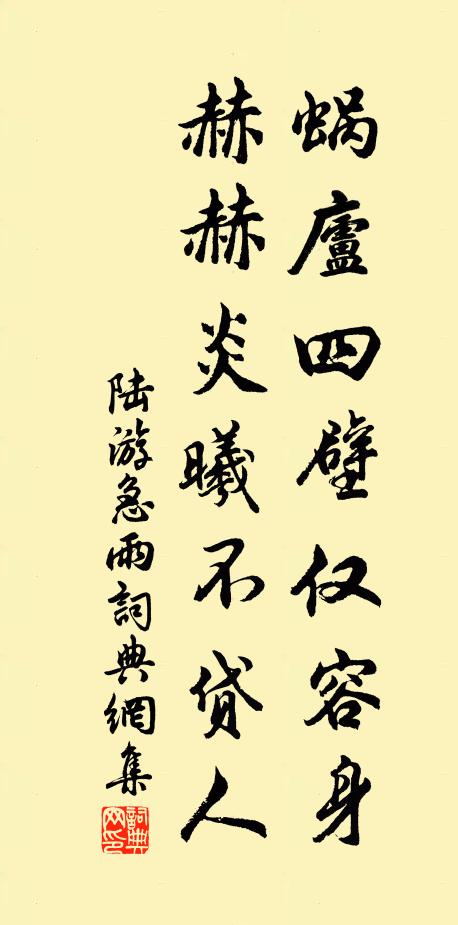 蜗廬四壁仅容身
赫赫炎曦不贷人
陆游急雨詞典網集
詞典网印